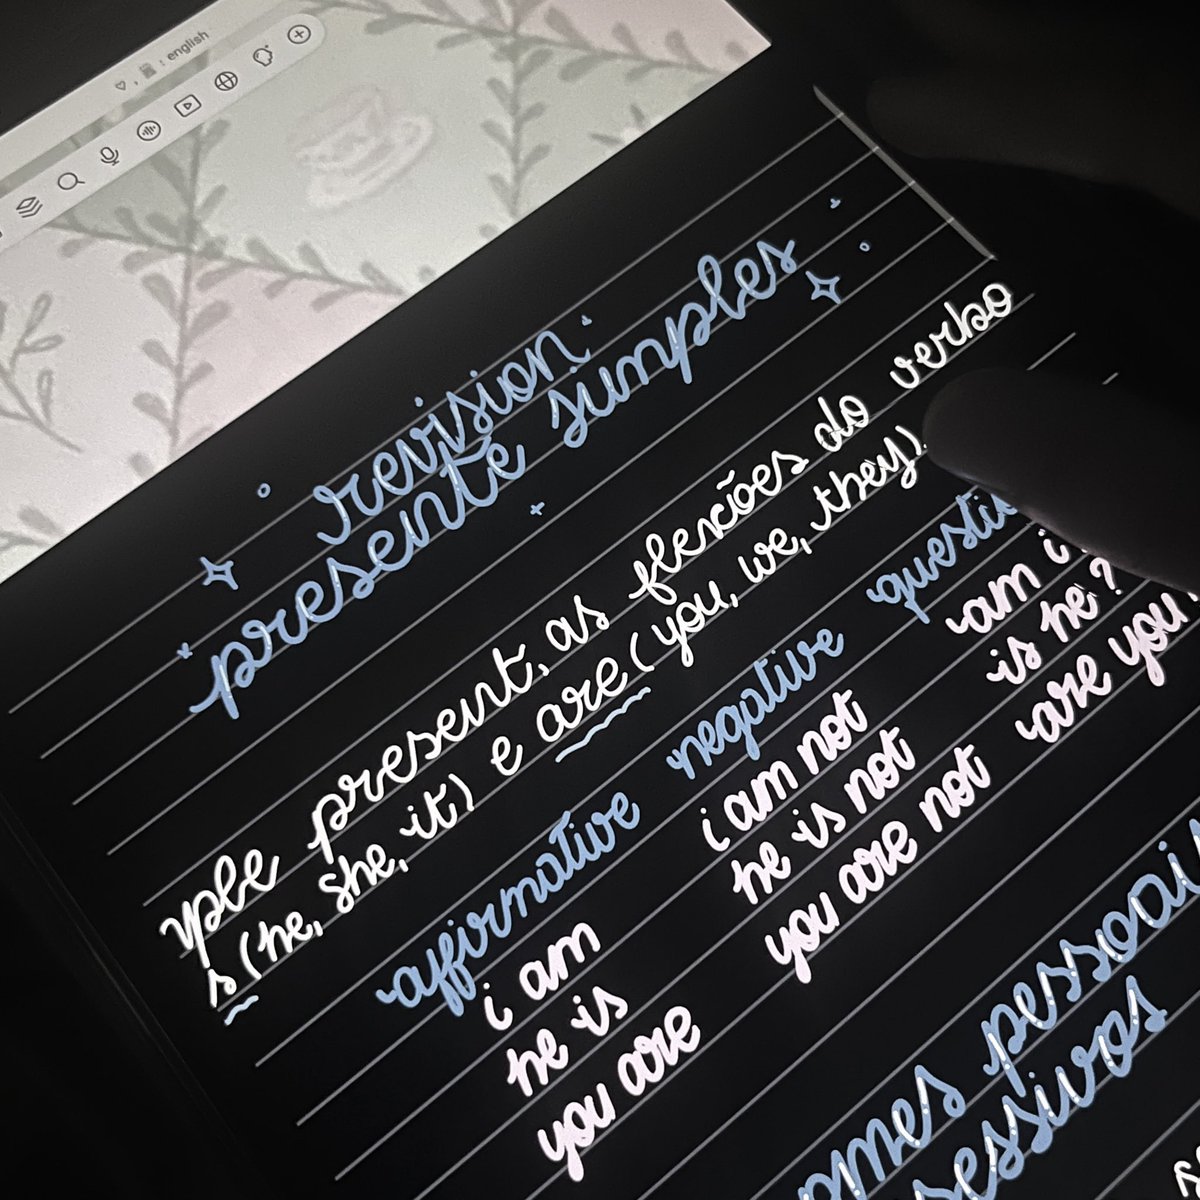 : english
revision
presente simples
mple present, as flexões do verbo
s (he, she, it) e are (you, we, they).
affirmative negative
i am i am not am i
he is he is not is he?
you are you are not are you